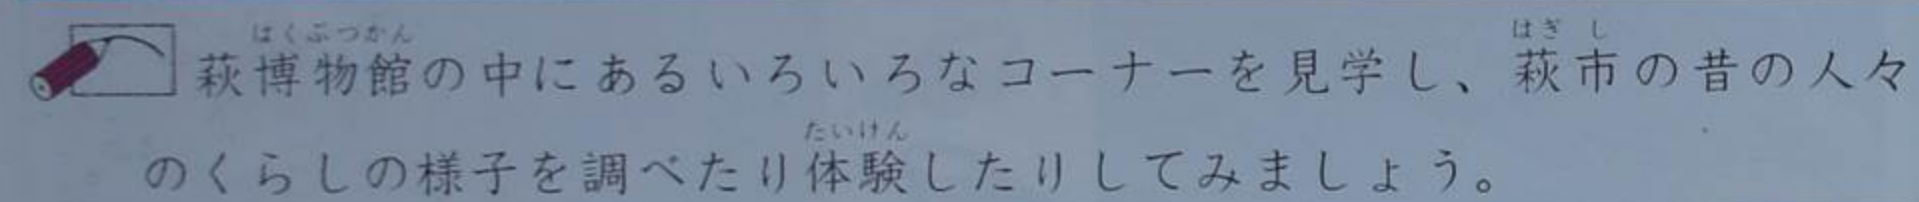 萩博物館の中にあるいろいろなコーナーを見学し、萩市の昔の人々
のくらしの様子を調べたり体験したりしてみましょう。